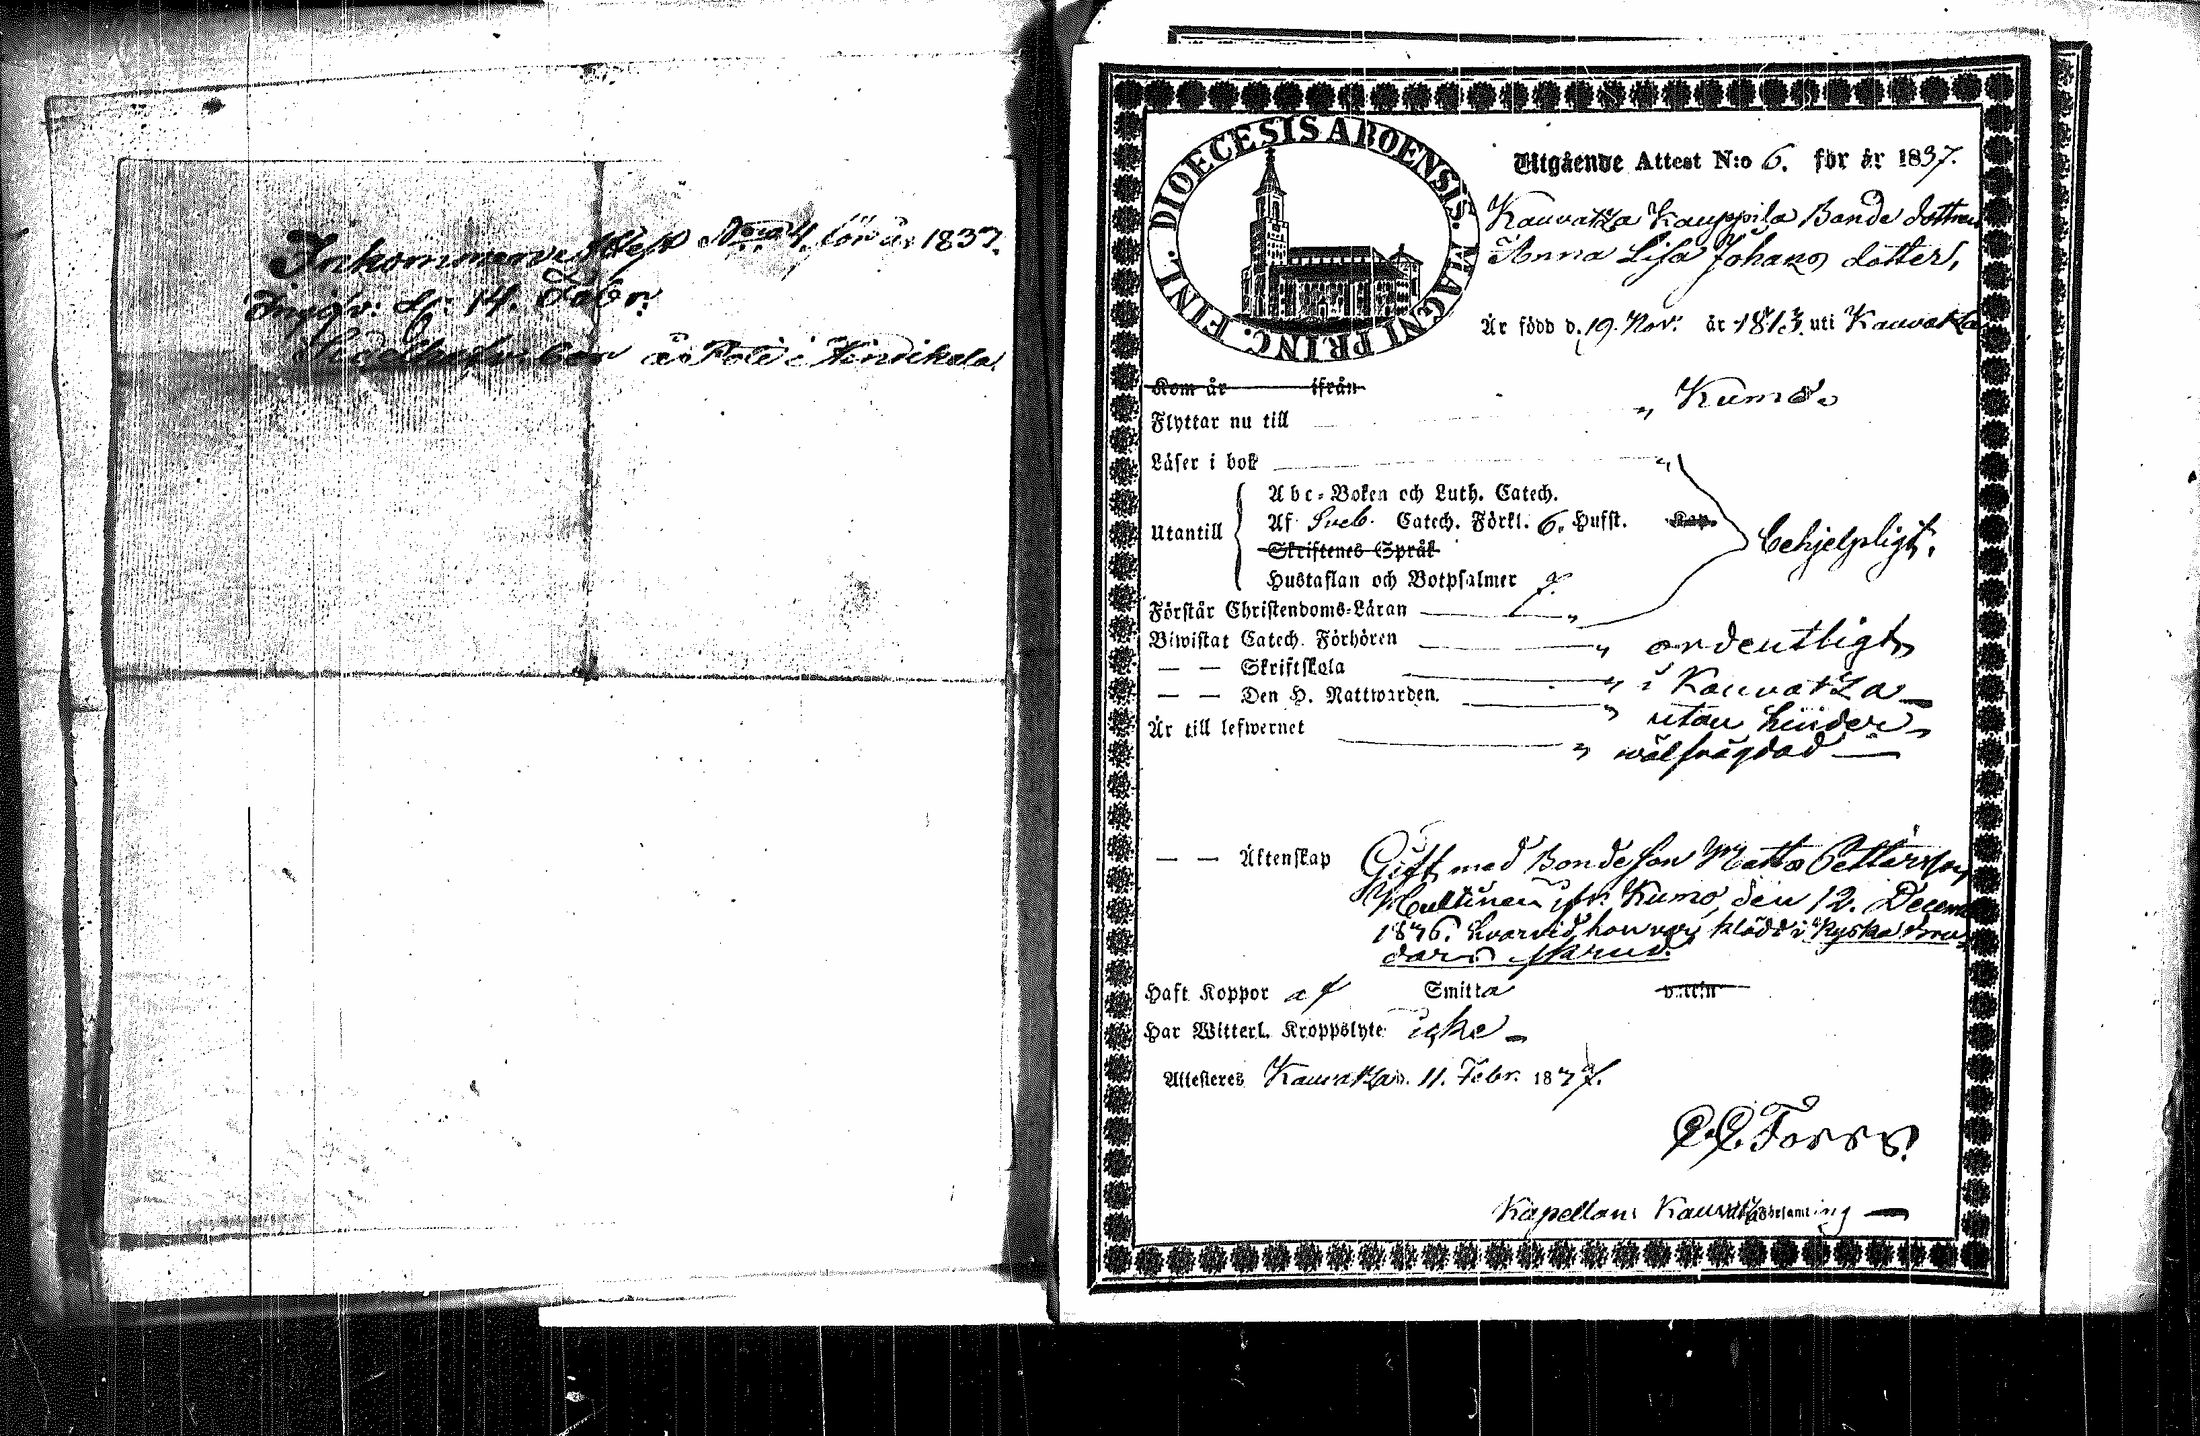 Inkommen Attest N:o 4. för år 1837.
Ingifv. d. 14. Febr.
å Pole i Hindikala
DIOECESIS ABOENSIS. MAGNI PRINC. FINL.
Utgående Attest N:o 6. för år 1837.
Kauvatza Kauppila Bonde dottren
Anna Lisa Johans dotter,
Är född d. 19. Nov. år 1813. uti Kauvatza
Kom år ifrån
Flyttar nu till „ Kumo.
Läser i bok „
Abc-Boken och Luth. Catech.
Utantill Af Sveb. Catech. Förkl. 6. Hufst. Kap. behjelpligt.
Skriftenes Språk
Hustaflan och Botpsalmer 7.
Förstår Christendoms-Läran „
Biwistat Catech. Förhören „ ordentligt
— — Skriftskola „ i Kauvatza
— — Den H. Nattwarden. „ utan hinder
Är till lefwernet „ wälfrägdad
— — Äktenskap Gift med Bonde son Matts Pettersson
ifr. Kumo, den 12. Decem
1836. hvarvid hon var klädd i Ryska bru-
dar skrud.
Haft Koppor af Smitta vaccin
Har Witterl. Kroppslyte icke
Attesteres Kauvatza d. 11. Febr. 1837.
Kapellan i Kauvatza Församling